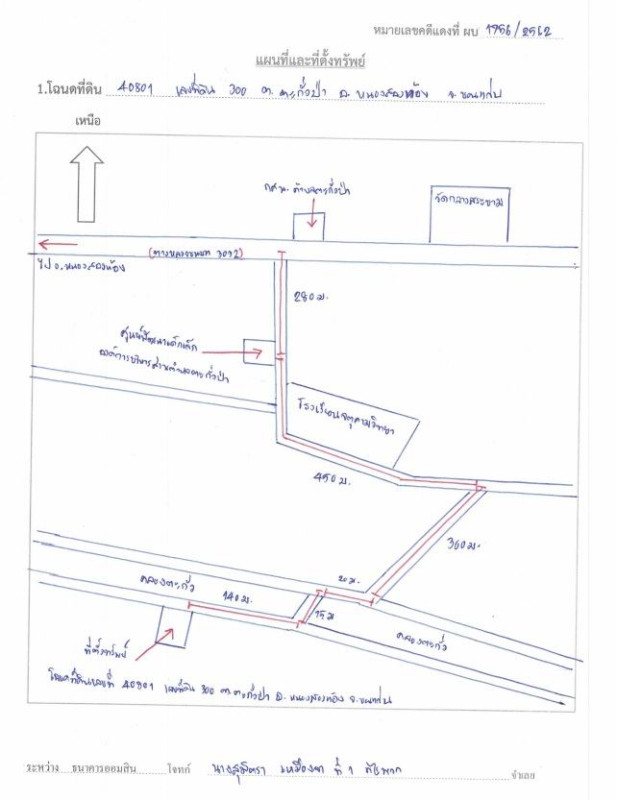 หมายเลขคดีแดงที่ ผบ 1956/2562
แผนที่และที่ตั้งทรัพย์
1.โฉนดที่ดิน 40801 เลขที่ดิน 300 ต.ตะกั่วป่า อ.หนองสองห้อง จ.ขอนแก่น
เหนือ
กศน. ตำบลตะกั่วป่า
วัดกลางสระขาม
(ทางหลวงชนบท 3012)
ไป อ.หนองสองห้อง
280 ม.
ศูนย์พัฒนาเด็กเล็ก
องค์การบริหารส่วนตำบลตะกั่วป่า
โรงเรียนจตุคามวิทยา
450 ม.
360 ม.
20 ม.
คลองตะกั่ว
140 ม.
15 ม
คลองตะกั่ว
ที่ตั้งทรัพย์
โฉนดที่ดินเลขที่ 40801 เลขที่ดิน 300 ต.ตะกั่วป่า อ.หนองสองห้อง จ.ขอนแก่น
ระหว่าง ธนาคารออมสิน โจทก์ นางสุมิตรา ที่ 1 จำเลย